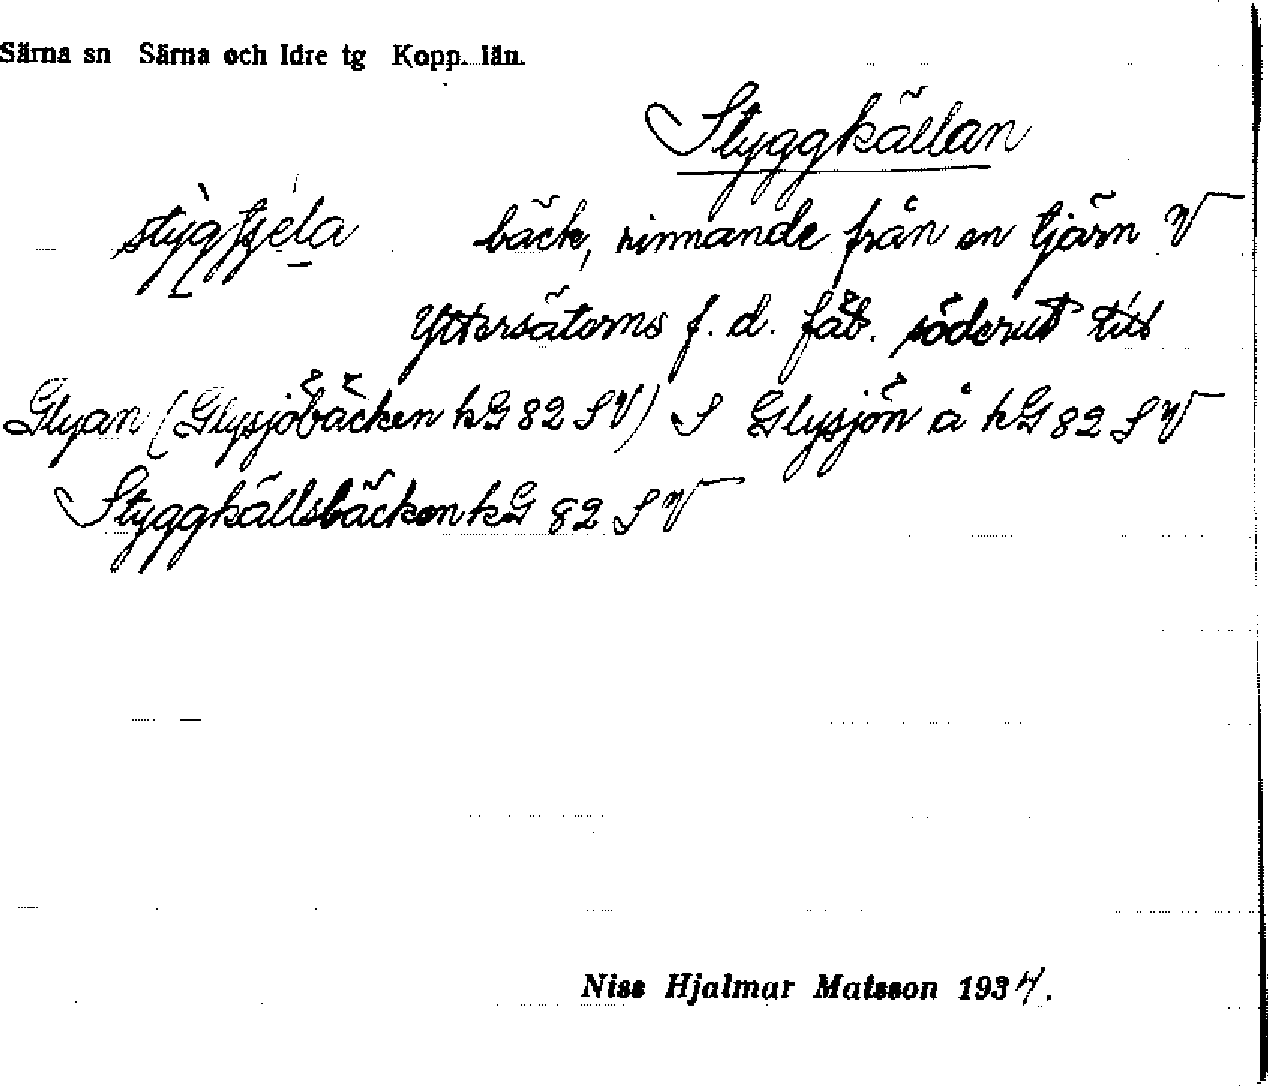 Särna sn Särna och Idre tg Kopp. län.
Styggkällan
bäck, rinnande från en tjärn V
Yttersäterns f. d. fäb. söderut till
Glyan (Glysjöbäcken kG 82 SV) S Glysjön å kG 82 SV
Styggkällsbäcken kG 82 SV
Niss Hjalmar Matsson 1934.